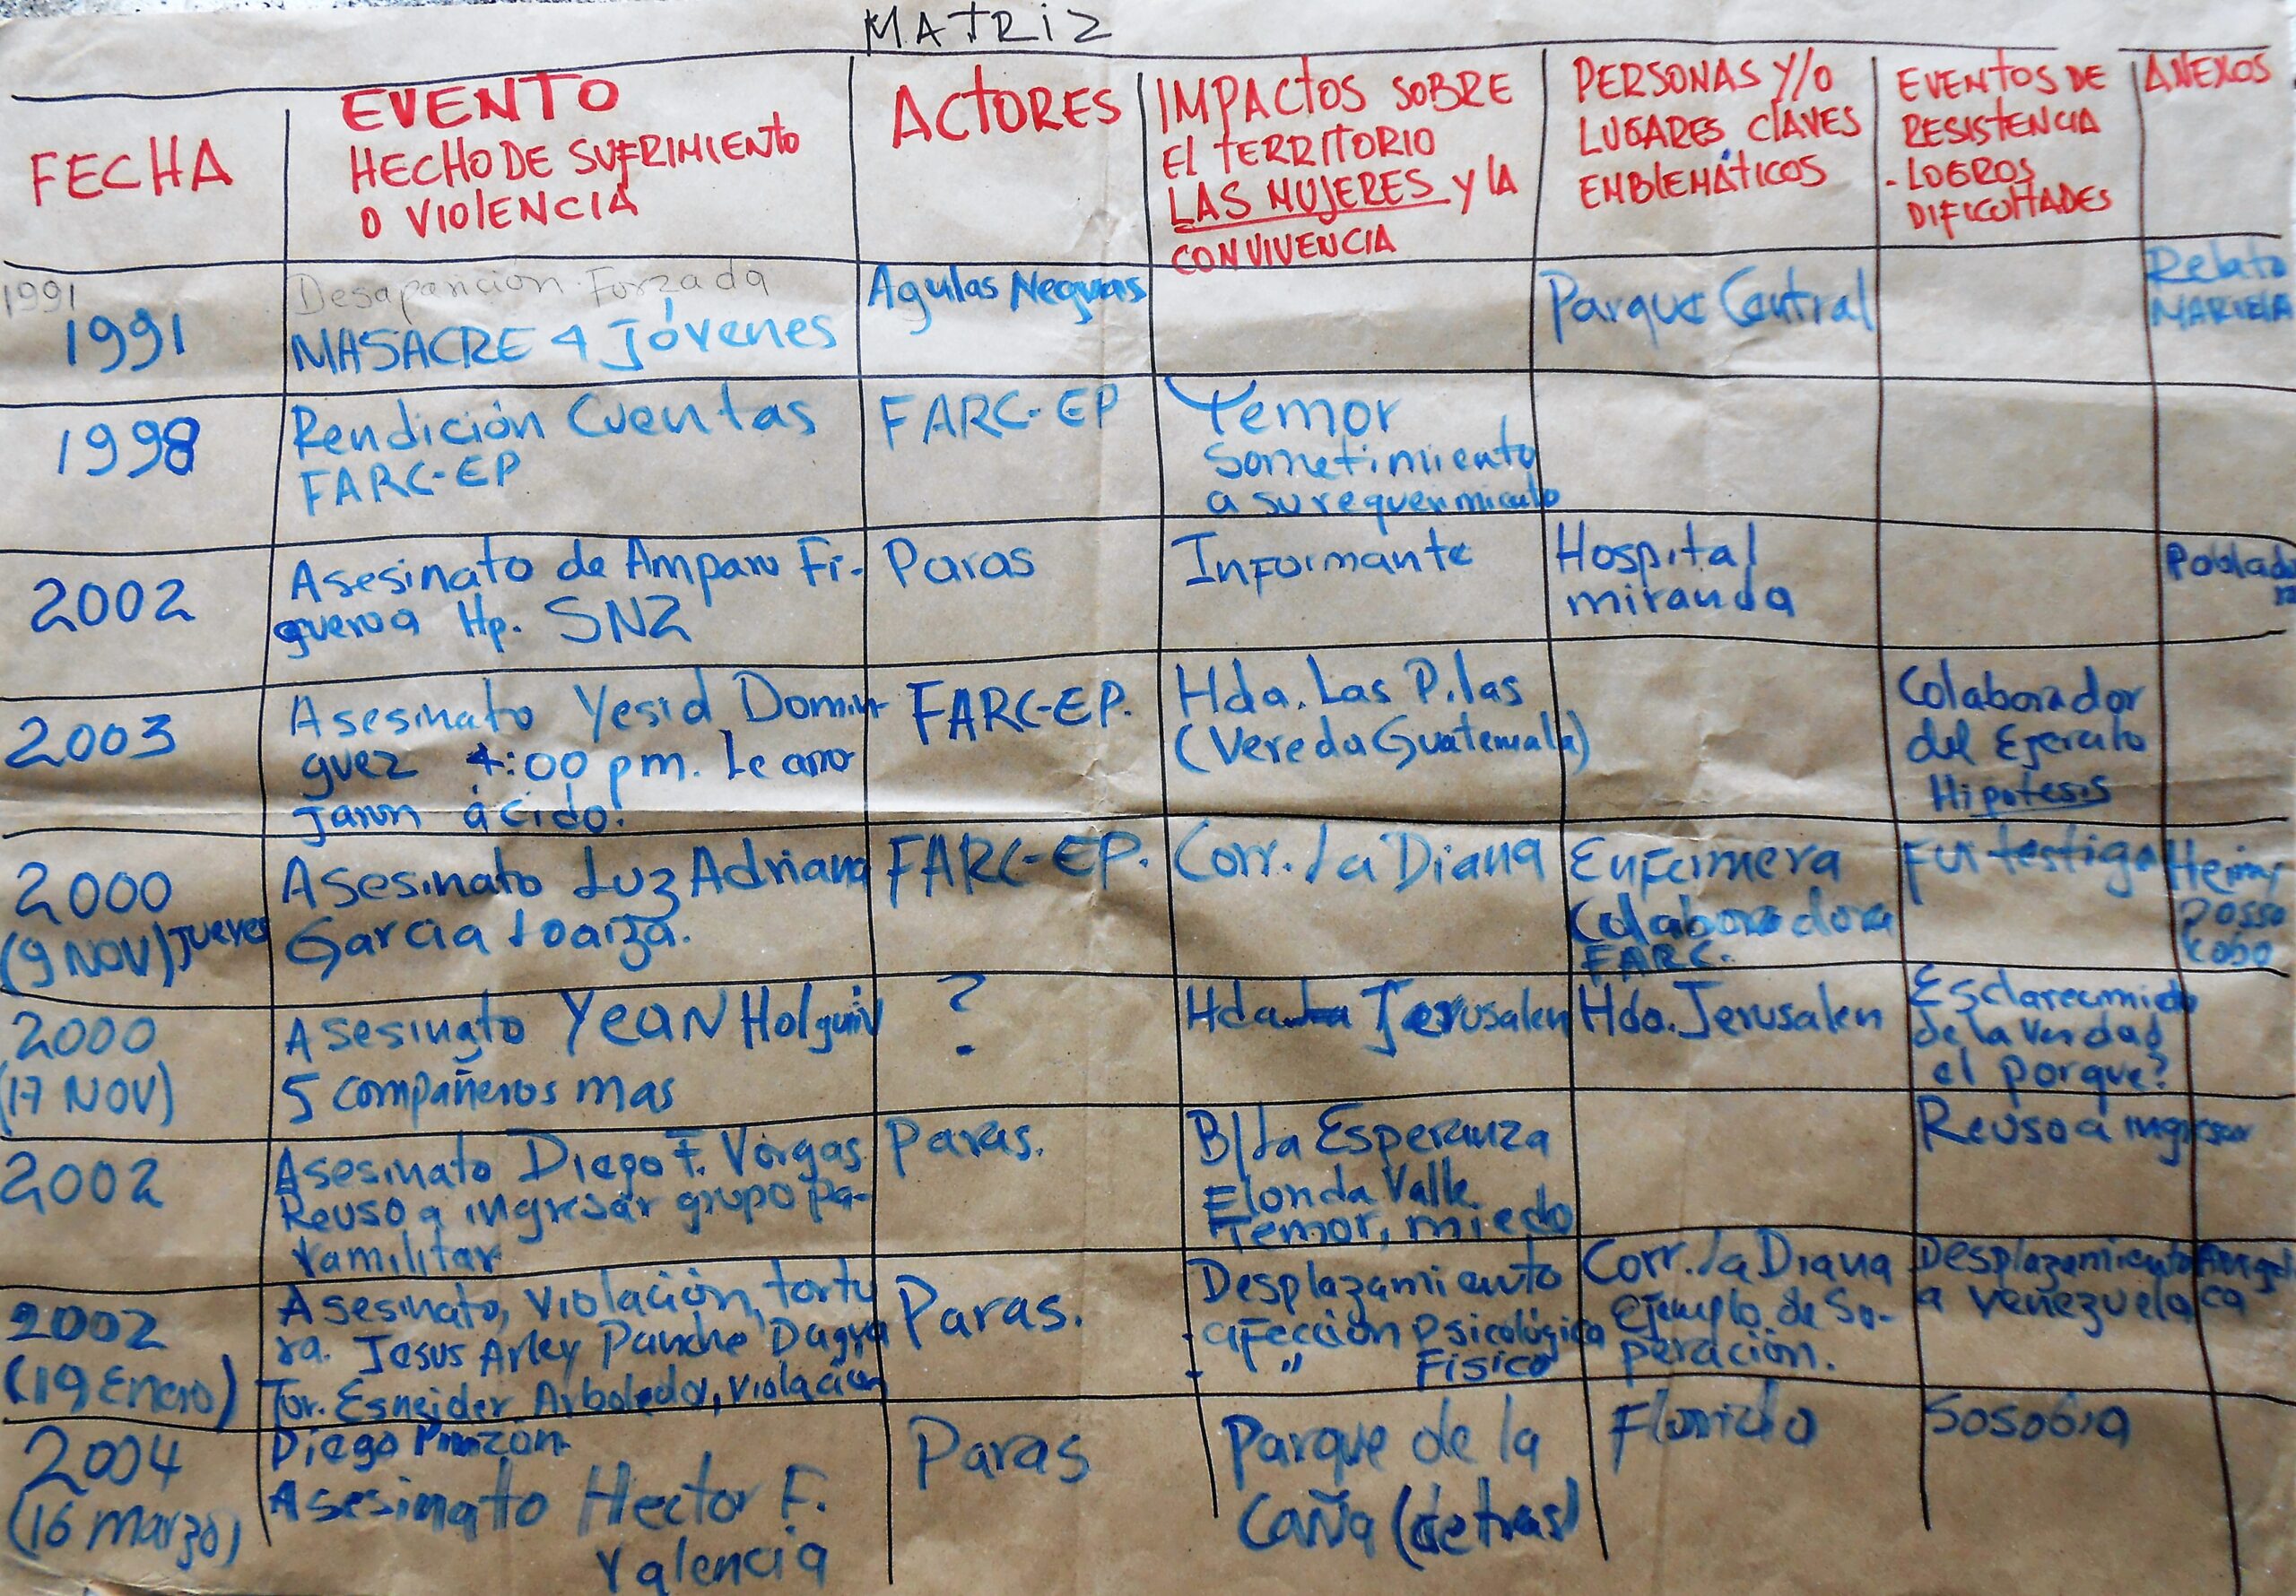 MATRIZ
FECHA
EVENTO
HECHO DE SUFRIMIENTO
O VIOLENCIA
ACTORES
IMPACTOS SOBRE
EL TERRITORIO
LAS MUJERES Y LA
CONVIVENCIA
PERSONAS Y/O
LUGARES CLAVES
EMBLEMÁTICOS
EVENTOS DE
RESISTENCIA
- LOGROS
DIFICULTADES
ANEXOS
1991
1991
Desaparición Forzada
MASACRE 4 Jóvenes
Agulas Negras
Parque Central
Relato
MARIELA
1998
Rendición Cuentas
FARC-EP
FARC-EP
Temor
Sometimiento
a su requerimiento
2002
Asesinato de Amparo Fi-
gueroa Hp. SNZ
Paras
Informante
Hospital
miranda
2003
Asesinato Yesid Domin
guez 4:00 pm. Le arro
jaron ácido.
FARC-EP.
Hda. Las Pilas
(Vereda Guatemala)
Colaborador
del Ejercito
Hipotesis
2000
(9 NOV) Jueves
Asesinato Luz Adriana
Garcia Loaiza.
FARC-EP.
Corr. La Diana
Enfermera
Colaboradora
FARC.
Fui testigo
2000
(17 NOV)
Asesinato Yean Holguin
5 compañeros mas
?
Hda. La Jerusalen
Hda. Jerusalen
Esclarecimido
de la verdad
el porque?
2002
Asesinato Diego F. Vargas
Reuso a ingresar grupo pa-
ramilitar
Paras.
B/La Esperanza
Elonda Valle
Temor, miedo
Reuso a ingresar
2002
(19 Enero)
Asesinato, violación, tortu
ra. Jesus Arley Panche Dagua
Tor. Esneider Arboleda, violación
Paras.
Desplazamiento
- afección Psicológica
- " Fisico
Corr. La Diana
Ejemplo de Su-
peración.
Desplazamiento
a venezuela
2004
(16 marzo)
Diego Pinzón
Asesinato Hector F.
Valencia
Paras
Parque de la
Caña (detras)
Florida